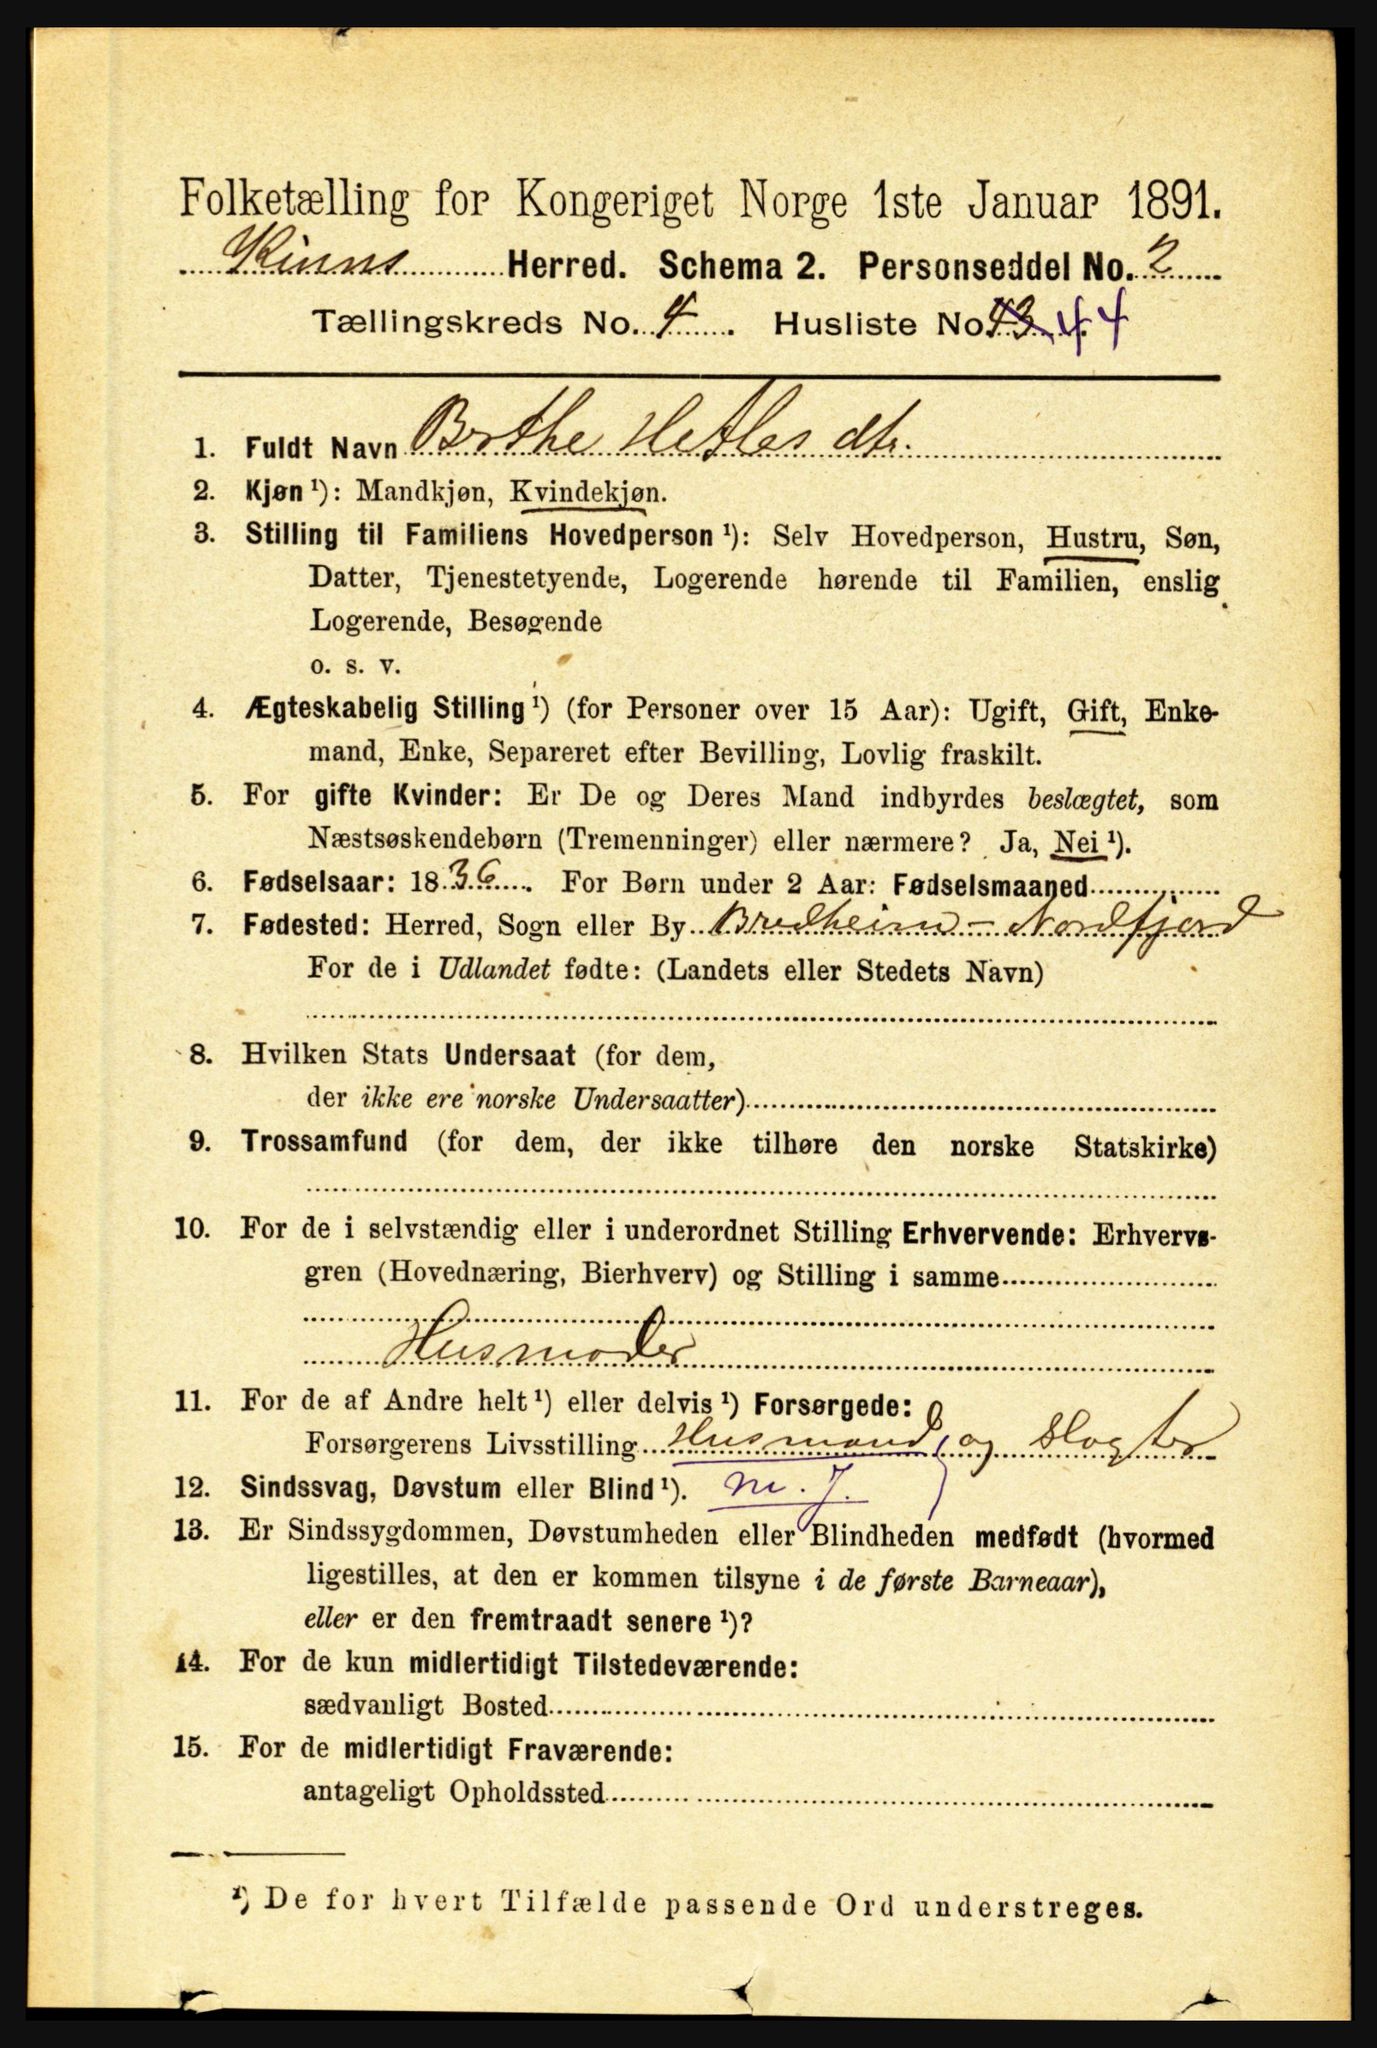 Folketælling for Kongeriget Norge 1ste Januar 1891.
Kinns Herred. Schema 2. Personseddel No. 2
Tællingskreds No. 4. Husliste No. 43 44
1. Fuldt Navn Berthe dtr.
2. Kjøn ¹): Mandkjøn, Kvindekjøn.
3. Stilling til Familiens Hovedperson ¹): Selv Hovedperson, Hustru, Søn,
Datter, Tjenestetyende, Logerende hørende til Familien, enslig
Logerende, Besøgende
o. s. v.
4. Ægteskabelig Stilling ¹) (for Personer over 15 Aar): Ugift, Gift, Enke-
mand, Enke, Separeret efter Bevilling, Lovlig fraskilt.
5. For gifte Kvinder: Er De og Deres Mand indbyrdes beslægtet, som
Næstsøskendebørn (Tremenninger) eller nærmere? Ja, Nei ¹).
6. Fødselsaar: 1836. For Børn under 2 Aar: Fødselsmaaned
7. Fødested: Herred, Sogn eller By Bredheim - Nordfjord
For de i Udlandet fødte: (Landets eller Stedets Navn)
8. Hvilken Stats Undersaat (for dem,
der ikke ere norske Undersaatter)
9. Trossamfund (for dem, der ikke tilhøre den norske Statskirke)
10. For de i selvstændig eller i underordnet Stilling Erhvervende: Erhvervs-
gren (Hovednæring, Bierhverv) og Stilling i samme
Husmoder
11. For de af Andre helt ¹) eller delvis ¹) Forsørgede:
Forsørgerens Livsstilling Husmand og Slagter
12. Sindssvag, Døvstum eller Blind ¹). m. J.
13. Er Sindssygdommen, Døvstumheden eller Blindheden medfødt (hvormed
ligestilles, at den er kommen tilsyne i de første Barneaar),
eller er den fremtraadt senere ¹)?
14. For de kun midlertidigt Tilstedeværende:
sædvanligt Bosted
15. For de midlertidigt Fraværende:
antageligt Opholdssted
¹) De for hvert Tilfælde passende Ord understreges.